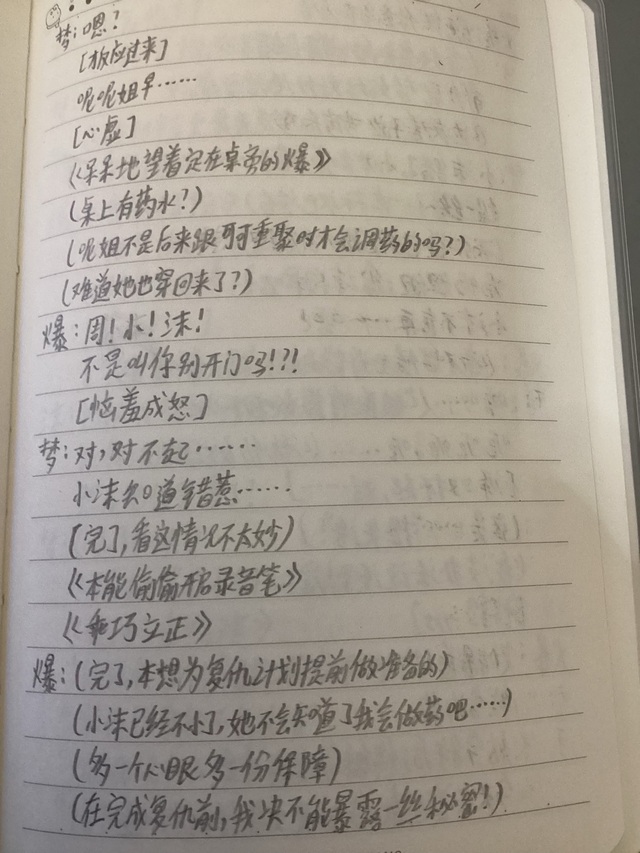 梦:嗯?
[放应过来]
呢呢姐早……
[心虚]
《呆呆地望着定在桌旁的爆》
(桌上有药水?)
(呢姐不是后来跟可可重聚时才会调药的吗?)
(难道她也穿回来了?)
爆:周!小!沫!
不是叫你别开门吗!?!
[恼羞成怒]
梦:对,对不起……
小沫知道错惹……
[完了,看这情况不太妙)
《本能偷偷开启录音笔》
《乖巧立正》
爆:(完了,本想为复仇计划提前做准备的)
(小沫已经不小了,她不会知道了我会做药吧……)
(多一个心眼多一份保障)
(在完成复仇前,我决不能暴露一丝秘密!)